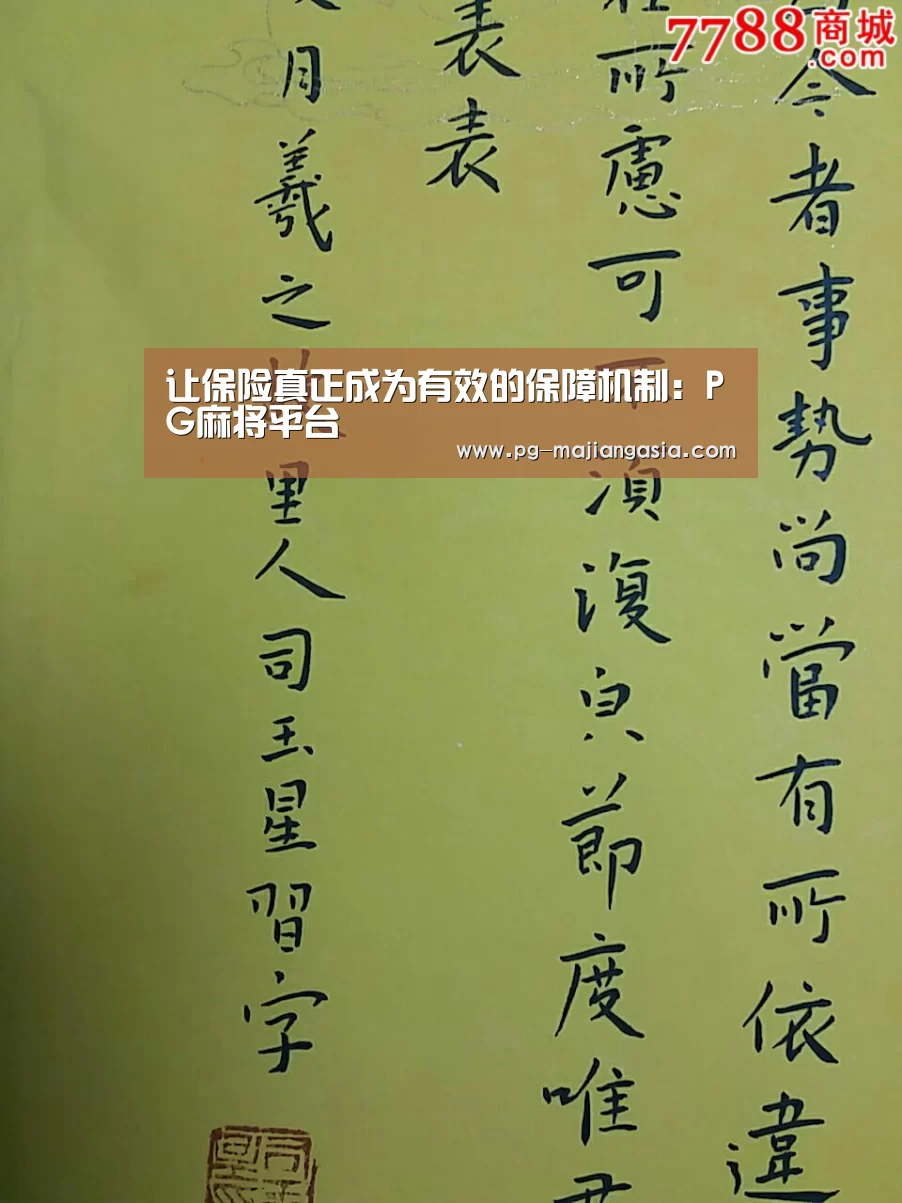 7788商城
.com
今者事勢尚當有所依違
所慮可不須復與節度唯君
表表
月羲之
里人司玉星習字
让保险真正成为有效的保障机制：P
G麻将平台
www.pg-majiangasia.com